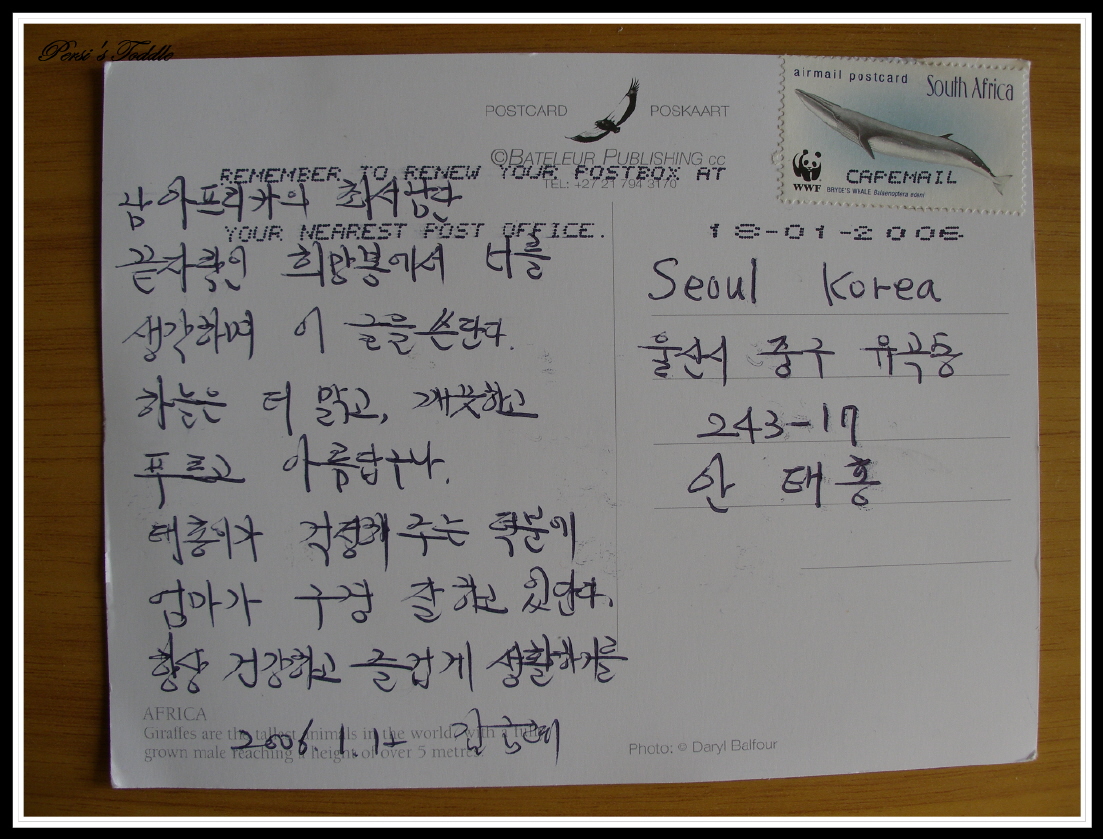 Persi's Toddle
airmail postcard South Africa
WWF
CAPEMAIL
BRYDE'S WHALE Balaenoptera edeni
POSTCARD POSKAART
©BATELEUR PUBLISHING CC
TEL: +27 21 794 3170
REMEMBER TO RENEW YOUR POSTBOX AT
YOUR NEAREST POST OFFICE.
18-01-2006
남 아프리카의 최서남단
끝자락인 희망봉에서 너를
생각하며 이 글을 쓴단다.
하늘은 더 맑고, 깨끗하고
푸르고 아름답구나.
태홍이가 걱정해 주는 덕분에
엄마가 구경 잘 하고 있단다.
항상 건강하고 즐겁게 생활하기를
2006. 1.
Seoul Korea
울산시 중구 유곡동
243-17
안 태홍
AFRICA
Giraffes are the tallest animals in the world, with a full
grown male reaching a height of over 5 metres.
Photo: © Daryl Balfour